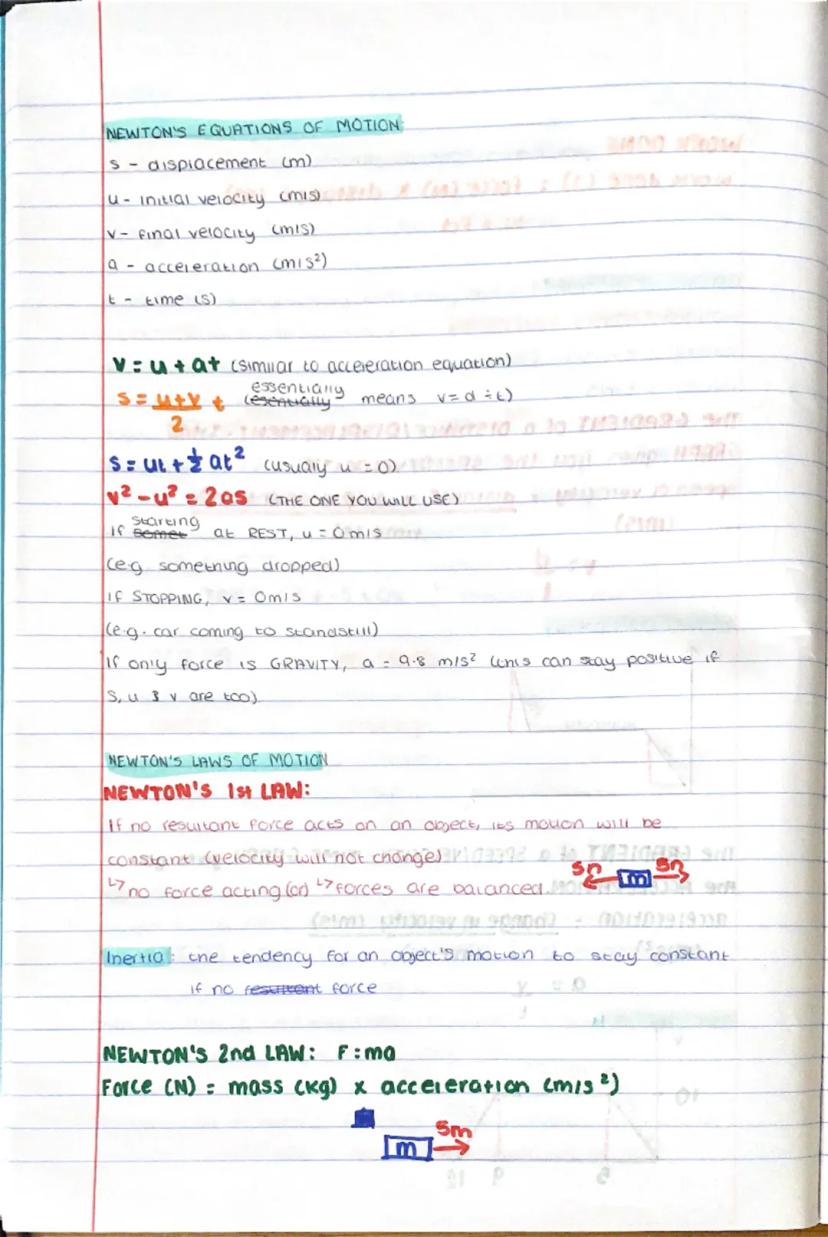 NEWTON'S EQUATIONS OF MOTION:
s - displacement (m)
u - initial velocity (m/s)
v - final velocity (m/s)
a - acceleration (m/s²)
t - time (s)
v = u + at (similar to acceleration equation)
s = u+v/2 t (esentially essentially means v = d ÷ t)
s = ut + ½ at² (usually u = 0)
v² - u² = 2as (THE ONE YOU WILL USE)
If starting at REST, u = 0m/s
(e.g. something dropped)
If STOPPING, v = 0m/s
(e.g. car coming to standstill)
If only force is GRAVITY, a = 9.8 m/s² (this can stay positive if
s, u & v are too)
NEWTON'S LAWS OF MOTION
NEWTON'S 1st LAW:
If no resultant force acts on an object, its motion will be
constant (velocity will not change)
↳ no force acting (or) ↳ forces are balanced.
5n m 5n
Inertia: the tendency for an object's motion to stay constant
if no resultant force
NEWTON'S 2nd LAW: F = ma
Force (N) = mass (kg) x acceleration (m/s²)
m 5m